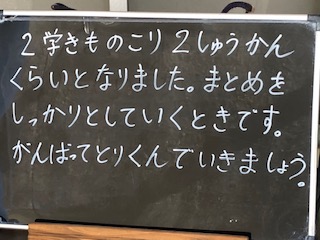 2学きものこり2しゅうかん
くらいとなりました。まとめを
しっかりとしていくときです。
がんばってとりくんでいきましょう。